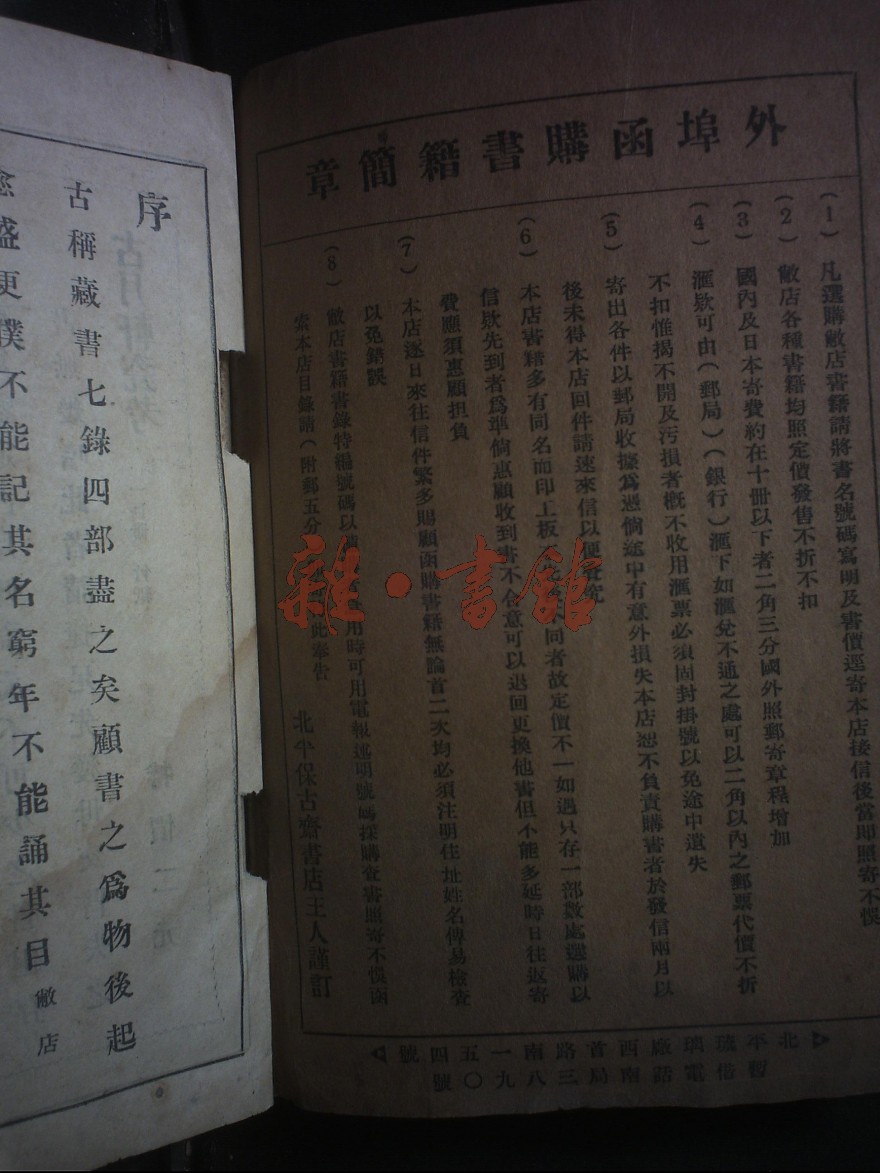 外埠函購書籍簡章
(1) 凡選購敝店書籍請將書名號碼寫明及書價逕寄本店接信後當即照寄不悞
(2) 敝店各種書籍均照定價發售不折不扣
(3) 國內及日本寄費約在十冊以下者二角三分國外照郵寄章程增加
(4) 滙欵可由(郵局)(銀行)滙下如滙兌不通之處可以二角以內之郵票代價不折
不扣惟揭不開及污損者槪不收用滙票必須固封掛號以免途中遺失
(5) 寄出各件以郵局收據爲憑倘途中有意外損失本店恕不負責購書者於發信兩月以
後未得本店回件請速來信以便査究
(6) 本店書籍多有同名而印上板不同者故定價不一如遇只存一部數處選購以
信欵先到者爲準倘惠顧收到書不合意可以退回更換他書但不能多延時日往返寄
費應須惠顧担負
(7) 本店逐日來往信件繁多賜顧函購書籍無論首二次均必須注明住址姓名俾易檢查
以免錯誤
(8) 敝店書籍書錄特編號碼以用時可用電報述明號碼採購査書照寄不悞函
索本店目錄請(附郵五分此奉告
北平保古齋書店主人謹訂
北平琉璃廠西首路南一五四號
暫借電話南局三八九〇號
序
古稱藏書七錄四部盡之矣顧書之爲物後起
愈盛更僕不能記其名窮年不能誦其目敝店
雜·書館